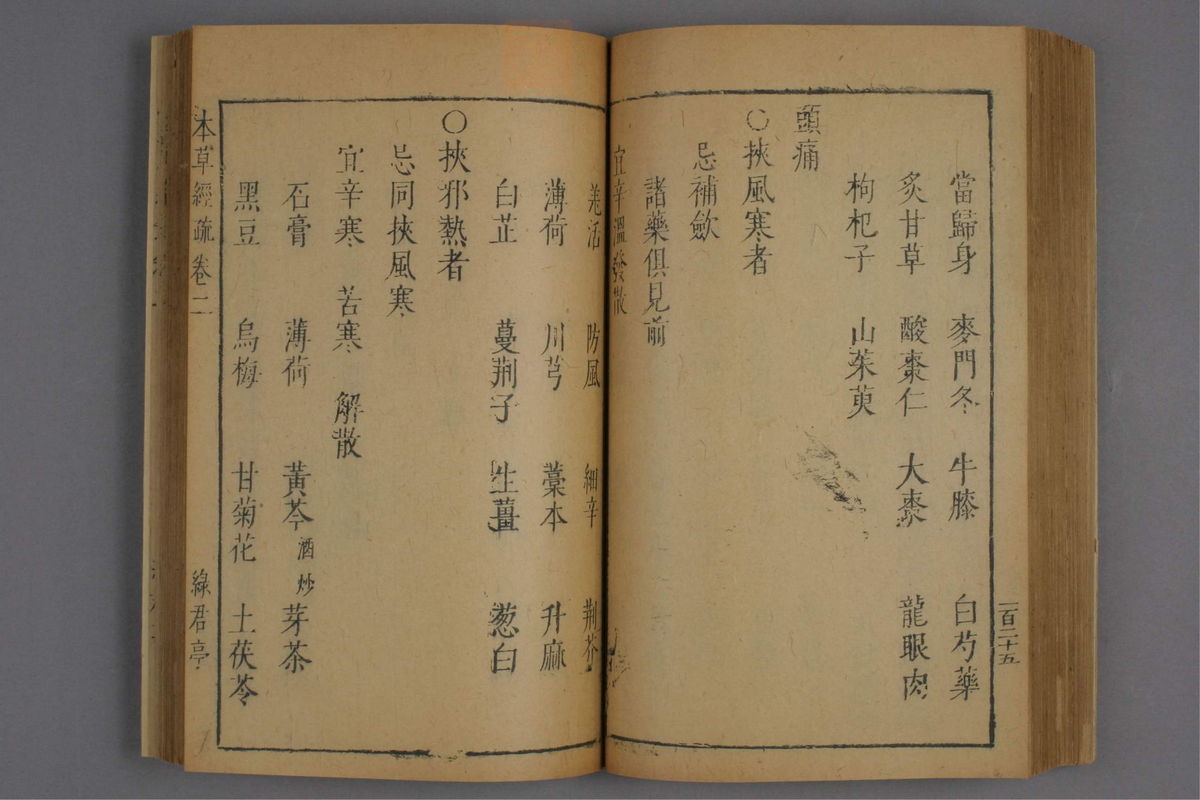 一百二十五
當歸身 麥門冬 牛膝 白芍藥
炙甘草 酸棗仁 大棗 龍眼肉
枸杞子 山茱萸
頭痛
○挾風寒者
忌補斂
諸藥俱見前
宜辛溫發散
羗活 防風 細辛 荆芥
薄荷 川芎 藁本 升麻
白芷 蔓荆子 生薑 葱白
○挾邪熱者
忌同挾風寒
宜辛寒 苦寒 解散
石膏 薄荷 黃芩酒炒 芽茶
黑豆 烏梅 甘菊花 土茯苓
本草經疏卷二 綠君亭